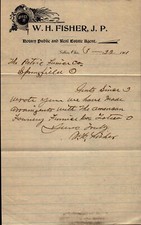 W. H. FISHER, J. P.
Notary Public and Real Estate Agent.
8-22-190
The Patric Furnace Co
Springfield O
Gents Since I
wrote you we have made
arraingments with the American
Foundry Furnace
Yours Truly
W H Fisher